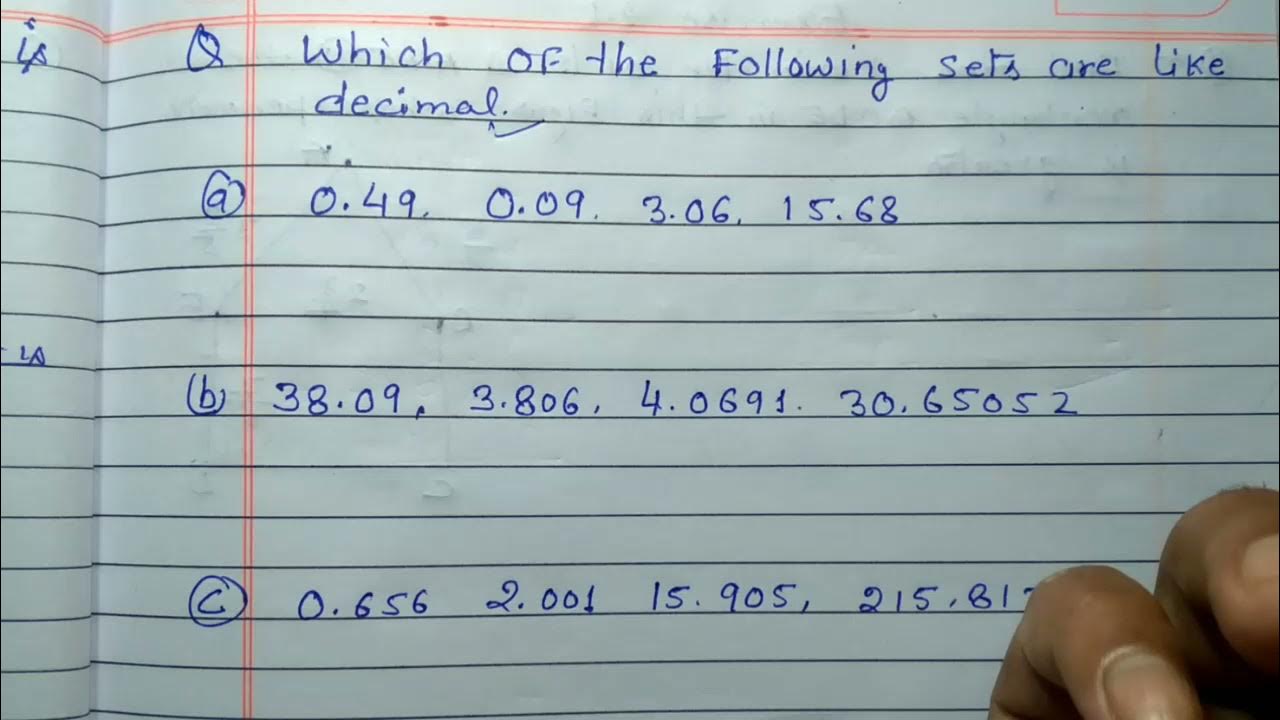 is
Q Which OF the Following sets are like
decimal.
(a) 0.49, 0.09, 3.06, 15.68
is
(b) 38.09, 3.806, 4.0691. 30.65052
(c) 0.656 2.001 15.905, 215.81